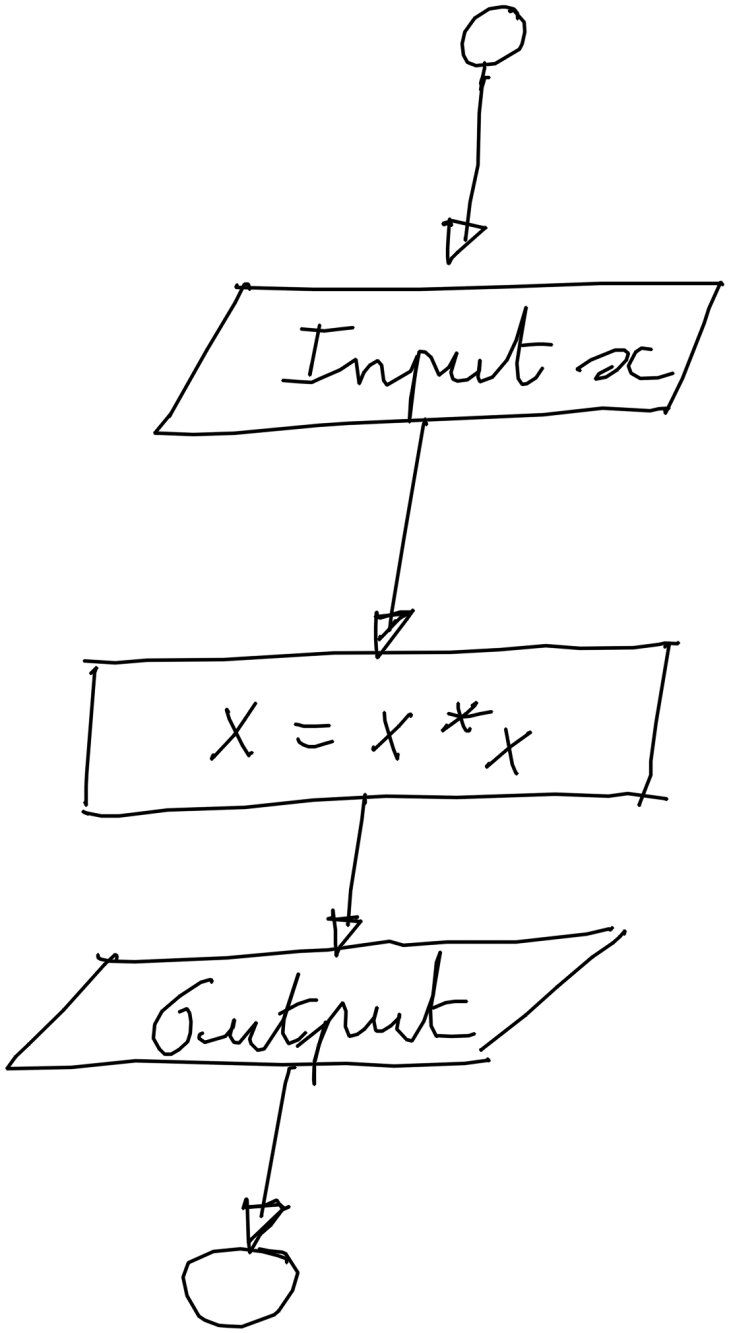 Input x
X = X * X
Output